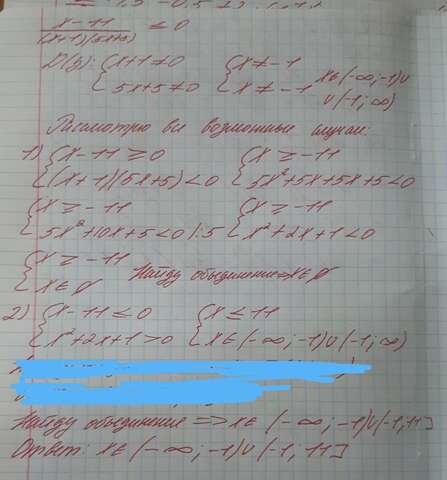 x-11 / (x+1)(5x+5) ≤ 0
D(y): {x+1≠0 {x≠-1 x∈(-∞;-1)∪
{5x+5≠0 {x≠-1 ∪(-1;∞)
Рассмотрю все возможные случаи:
1) {x-11≥0 {x≥-11
{(x+1)(5x+5)<0 {5x²+5x+5x+5<0
{x≥-11 {x≥-11
{5x²+10x+5<0 |:5 {x²+2x+1<0
{x≥-11
{x∈∅ Найду объединение=>x∈∅
2) {x-11≤0 {x≤11
{x²+2x+1>0 {x∈(-∞;-1)∪(-1;∞)
Найду объединение => x∈(-∞;-1)∪(-1;11]
Ответ: x∈(-∞;-1)∪(-1;11]